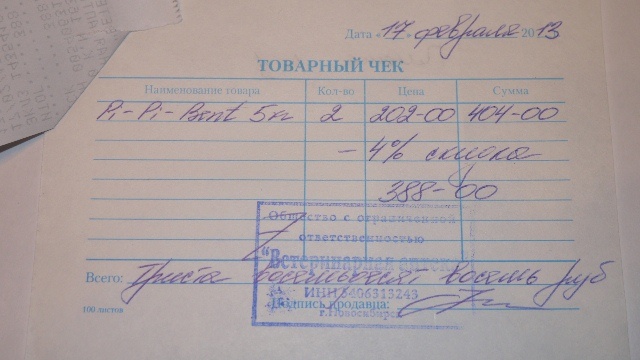 Дата «17» февраля 2013
ТОВАРНЫЙ ЧЕК
Наименование товара Кол-во Цена Сумма
Pi-Pi-Bent 5кг 2 202-00 404-00
- 4% скидка
388-00
Общество с ограниченной
ответственностью
"Ветеринарная аптека"
Всего: Триста восемьдесят восемь руб
ИНН 5406313243
Подпись продавца:
г.Новосибирск
100 листов